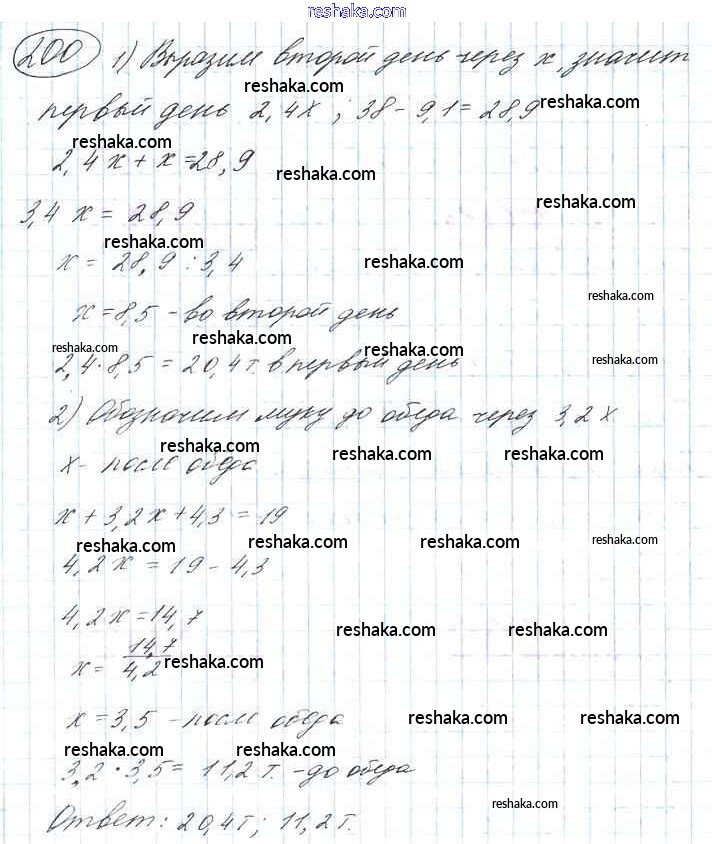 reshaka.com
200 1) Выразим второй день через x, значит
reshaka.com reshaka.com
первый день 2,4x ; 38 - 9,1 = 28,9
reshaka.com
2,4x + x = 28,9
reshaka.com
reshaka.com
3,4 x = 28,9
reshaka.com
x = 28,9 : 3,4
reshaka.com
reshaka.com
x = 8,5 - во второй день
reshaka.com reshaka.com reshaka.com reshaka.com
2,4 · 8,5 = 20,4 т. в первый день
2) Обозначим муку до обеда через 3,2 x
reshaka.com reshaka.com reshaka.com
x - после обеда
x + 3,2x + 4,3 = 19
reshaka.com reshaka.com reshaka.com reshaka.com
4,2x = 19 - 4,3
4,2x = 14,7
reshaka.com reshaka.com
x = 14,7 / 4,2
reshaka.com
x = 3,5 - после обеда
reshaka.com reshaka.com
reshaka.com reshaka.com
3,2 · 3,5 = 11,2 т. - до обеда
reshaka.com
Ответ: 20,4 т; 11,2 т.